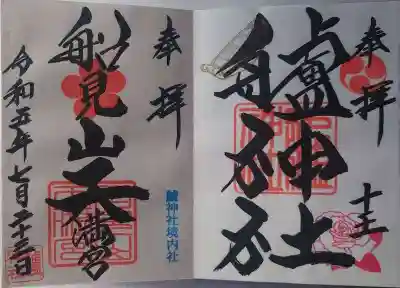 奉拝
十三
艫神社
奉拝
船見山天満宮
艫神社境内社
令和五年七月二十三日